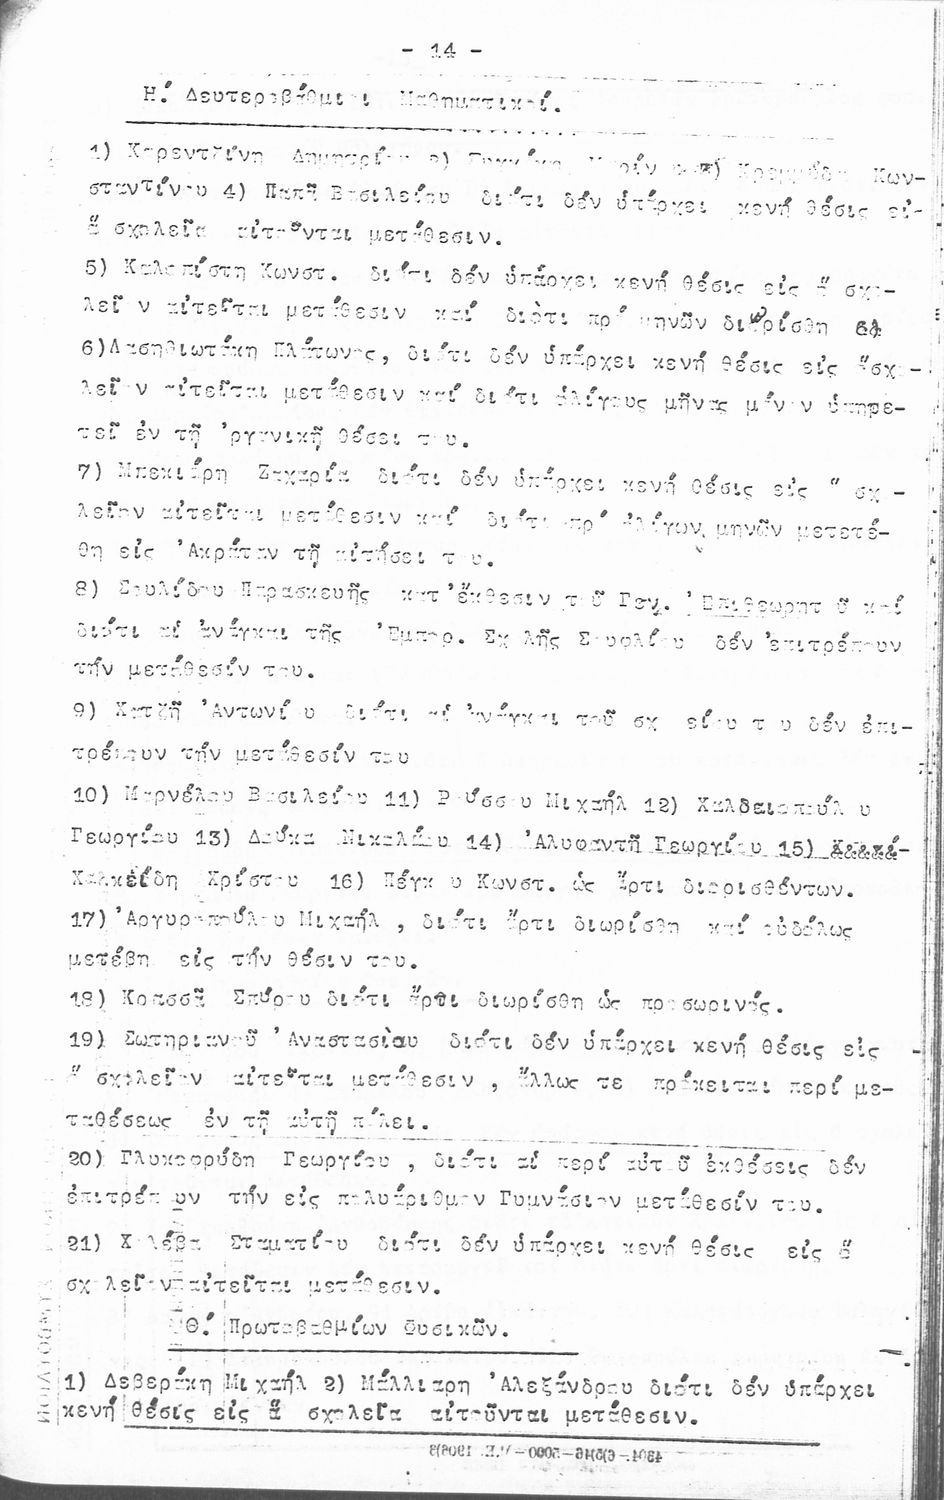 - 14 -
Η.΄ Δευτεροβάθμιοι Μαθηματικοί.
1) Καρεντζίνη Δημητρίου 2) Κων-
σταντίνου 4) Παπᾶ Βασιλείου διότι δέν ὑπάρχει κενή θέσις εἰ-
ἅ σχολεῖα αἰτοῦνται μετάθεσιν.
5) Καλαπίστη Κωνστ. διότι δέν ὑπάρχει κενή θέσις εἰς ὅ σχο-
λεῖον αἰτεῖται μετάθεσιν καί διότι πρό μηνῶν διωρίσθη
6)Λασηθιωτάκη Πλάτωνος, διότι δέν ὑπάρχει κενή θέσις εἰς ὅσχο-
λεῖον αἰτεῖται μετάθεσιν καί διότι ὀλίγους μῆνας μόνον ὑπηρε-
τεῖ ἐν τῇ ὀργανικῇ θέσει του.
7) Μπεκιάρη Ζαχαρία διότι δέν ὑπάρχει κενή θέσις εἰς ὅ σχο-
λεῖον αἰτεῖται μετάθεσιν καί διότι πρό ὀλίγων μηνῶν μετετέ-
θη εἰς Ἀκράταν τῇ αἰτήσει του.
8) Σουλίδου Παρασκευῆς κατ' ἔκθεσιν τοῦ Γεν. Ἐπιθεωρητοῦ καί
διότι αἱ ἀνάγκαι τῆς Ἐμπορ. Σχολῆς Σουφλίου δέν ἐπιτρέπουν
τήν μετάθεσίν του.
9) Χατζῆ Ἀντωνίου διότι αἱ ἀνάγκαι τοῦ σχ είου του δέν ἐπι-
τρέπουν τήν μετάθεσίν του
10) Μαρνέλου Βασιλείου 11) Ρούσσου Μιχαήλ 12) Χαλδαιοπούλου
Γεωργίου 13) Δούκα Νικολάου 14) Ἀλυφαντῆ Γεωργίου 15)
Χαλκείδη Χρίστου 16) Πέγκου Κωνστ. ὡς ἄρτι διορισθέντων.
17) Ἀργυροπούλου Μιχαήλ , διότι ἄρτι διωρίσθη καί οὐδόλως
μετέβη εἰς τήν θέσιν του.
18) Κρασσᾶ Σπύρου διότι ἄρτι διωρίσθη ὡς προσωρινός.
19) Σωτηριανοῦ Ἀναστασίου διότι δέν ὑπάρχει κενή θέσις εἰς
ὅ σχολεῖον αἰτεῖται μετάθεσιν , ἄλλως τε πρόκειται περί με-
ταθέσεως ἐν τῇ αὐτῇ πόλει.
20) Γλυκοφρύδη Γεωργίου , διότι αἱ περί αὐτοῦ ἐκθέσεις δέν
ἐπιτρέπουν τήν εἰς πολυάριθμον Γυμνάσιον μετάθεσίν του.
21) Χολέβα Σταματίου διότι δέν ὑπάρχει κενή θέσις εἰς ὅ
σχολεῖον αἰτεῖται μετάθεσιν.
Θ.΄ Πρωτοβαθμίων Φυσικῶν.
1) Δεβεράκη Μιχαήλ 2) Μάλλιαρη Ἀλεξάνδρου διότι δέν ὑπάρχει
κενή θέσις εἰς ἅ σχολεῖα αἰτοῦνται μετάθεσιν.